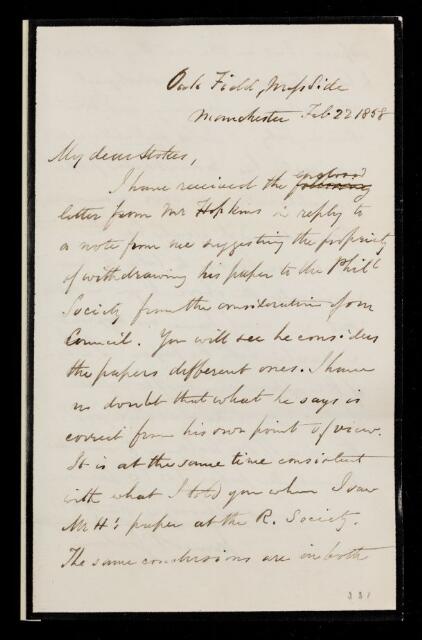 Oak Field, Moss Side
Manchester Feb 22 1858
My dear Stokes,
I have received the enclosed following
letter from Mr Hopkins in reply to
a note from me suggesting the propriety
of withdrawing his paper to the Phill
Society from the consideration of our
Council. You will see he considers
the papers different ones. I have
no doubt that what he says is
correct from his own point of view.
It is at the same time consistent
with what I told you when I saw
Mr H's paper at the R. Society.
The same conclusions are in both
221